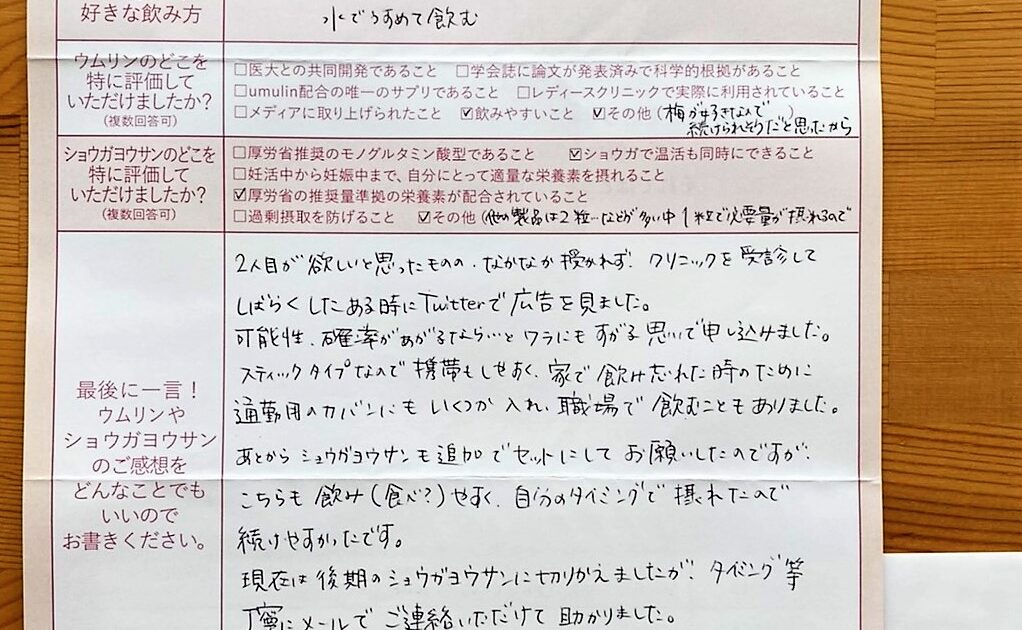 好きな飲み方
水でうすめて飲む
ウムリンのどこを
特に評価して
いただけましたか?
(複数回答可)
□医大との共同開発であること □学会誌に論文が発表済みで科学的根拠があること
□umulin配合の唯一のサプリであること □レディースクリニックで実際に利用されていること
□メディアに取り上げられたこと ☑飲みやすいこと ☑その他(梅が好きなんで
続けられそうだと思ったから)
ショウガヨウサンのどこを
特に評価して
いただけましたか?
(複数回答可)
□厚労省推奨のモノグルタミン酸型であること ☑ショウガで温活も同時にできること
□妊活中から妊娠中まで、自分にとって適量な栄養素を摂れること
☑厚労省の推奨量準拠の栄養素が配合されていること
□過剰摂取を防げること ☑その他(他の製品は2粒…などが多い中1粒で必要量が摂れるので
最後に一言!
ウムリンや
ショウガヨウサン
のご感想を
どんなことでも
いいので
お書きください。
2人目が欲しいと思ったものの、なかなか授かれず、クリニックを受診して
しばらくしたある時にTwitterで広告を見ました。
可能性、確率があがるなら…とワラにもすがる思いで申し込みました。
スティックタイプなので携帯もしやすく、家で飲み忘れた時のために
通勤用のカバンにもいくつか入れ、職場で飲むこともありました。
あとからショウガヨウサンも追加でセットにしてお願いしたのですが、
こちらも飲み(食べ?)やすく、自分のタイミングで摂れたので
続けやすかったです。
現在は後期のショウガヨウサンに切りかえましたが、タイミング等
丁寧にメールでご連絡いただけて助かりました。